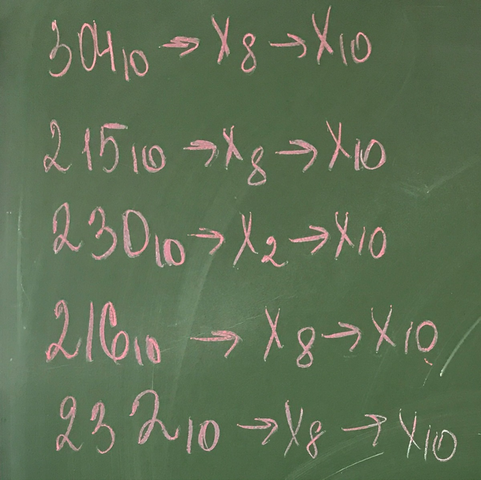 304₁₀ → X₈ → X₁₀
215₁₀ → X₈ → X₁₀
230₁₀ → X₂ → X₁₀
216₁₀ → X₈ → X₁₀
232₁₀ → X₈ → X₁₀